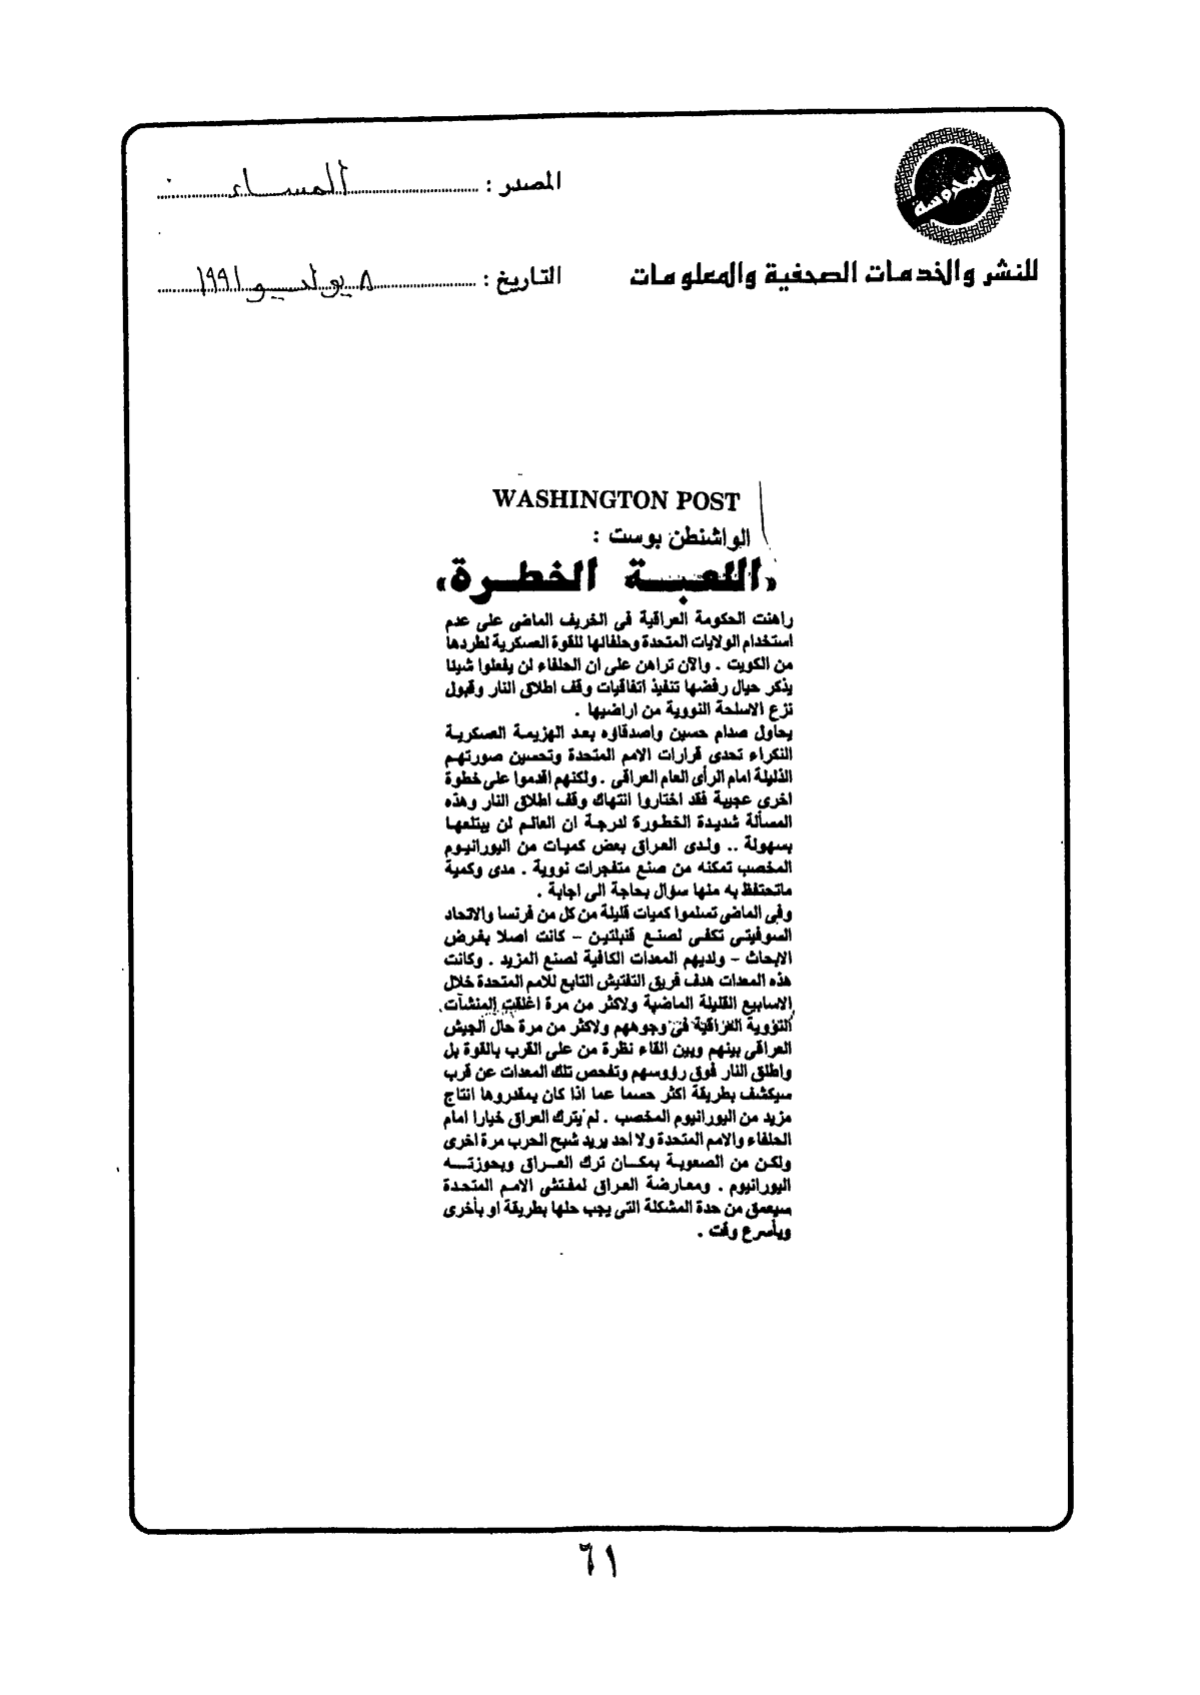 المحروسة
للنشر والخدمات الصحفية والمعلومات
المصدر : المساء
التاريخ : ٨ يوليو ١٩٩١
WASHINGTON POST
الواشنطن بوست :
«اللعبة الخطرة»
راهنت الحكومة العراقية فى الخريف الماضى على عدم
استخدام الولايات المتحدة وحلفائها للقوة العسكرية لطردها
من الكويت . والآن تراهن على ان الحلفاء لن يفعلوا شيئا
يذكر حيال رفضها تنفيذ اتفاقيات وقف اطلاق النار وقبول
نزع الاسلحة النووية من اراضيها .
يحاول صدام حسين واصدقاؤه بعد الهزيمة العسكرية
النكراء تحدى قرارات الامم المتحدة وتحسين صورتهم
الذليلة امام الرأى العام العراقى . ولكنهم اقدموا على خطوة
اخرى عجيبة فقد اختاروا انتهاك وقف اطلاق النار وهذه
المسألة شديدة الخطورة لدرجة ان العالم لن يبتلعها
بسهولة .. ولدى العراق بعض كميات من اليورانيوم
المخصب تمكنه من صنع متفجرات نووية . مدى وكمية
ماتحتفظ به منها سؤال بحاجة الى اجابة .
وفى الماضى تسلموا كميات قليلة من كل من فرنسا والاتحاد
السوفيتى تكفى لصنع قنبلتين - كانت اصلا بغرض
الابحاث - ولديهم المعدات الكافية لصنع المزيد . وكانت
هذه المعدات هدف فريق التفتيش التابع للامم المتحدة خلال
الاسابيع القليلة الماضية ولاكثر من مرة اغلقت المنشآت
النووية العراقية فى وجوههم ولاكثر من مرة حال الجيش
العراقى بينهم وبين القاء نظرة من على القرب بالقوة بل
واطلق النار فوق رؤوسهم وتفحص تلك المعدات عن قرب
سيكشف بطريقة اكثر حسما عما اذا كان بمقدروها انتاج
مزيد من اليورانيوم المخصب . لم يترك العراق خيارا امام
الحلفاء والامم المتحدة ولا احد يريد شبح الحرب مرة اخرى
ولكن من الصعوبة بمكان ترك العراق وبحوزته
اليورانيوم . ومعارضة العراق لمفتشى الامم المتحدة
سيعمق من حدة المشكلة التى يجب حلها بطريقة او بأخرى
وبأسرع وقت .
٦١